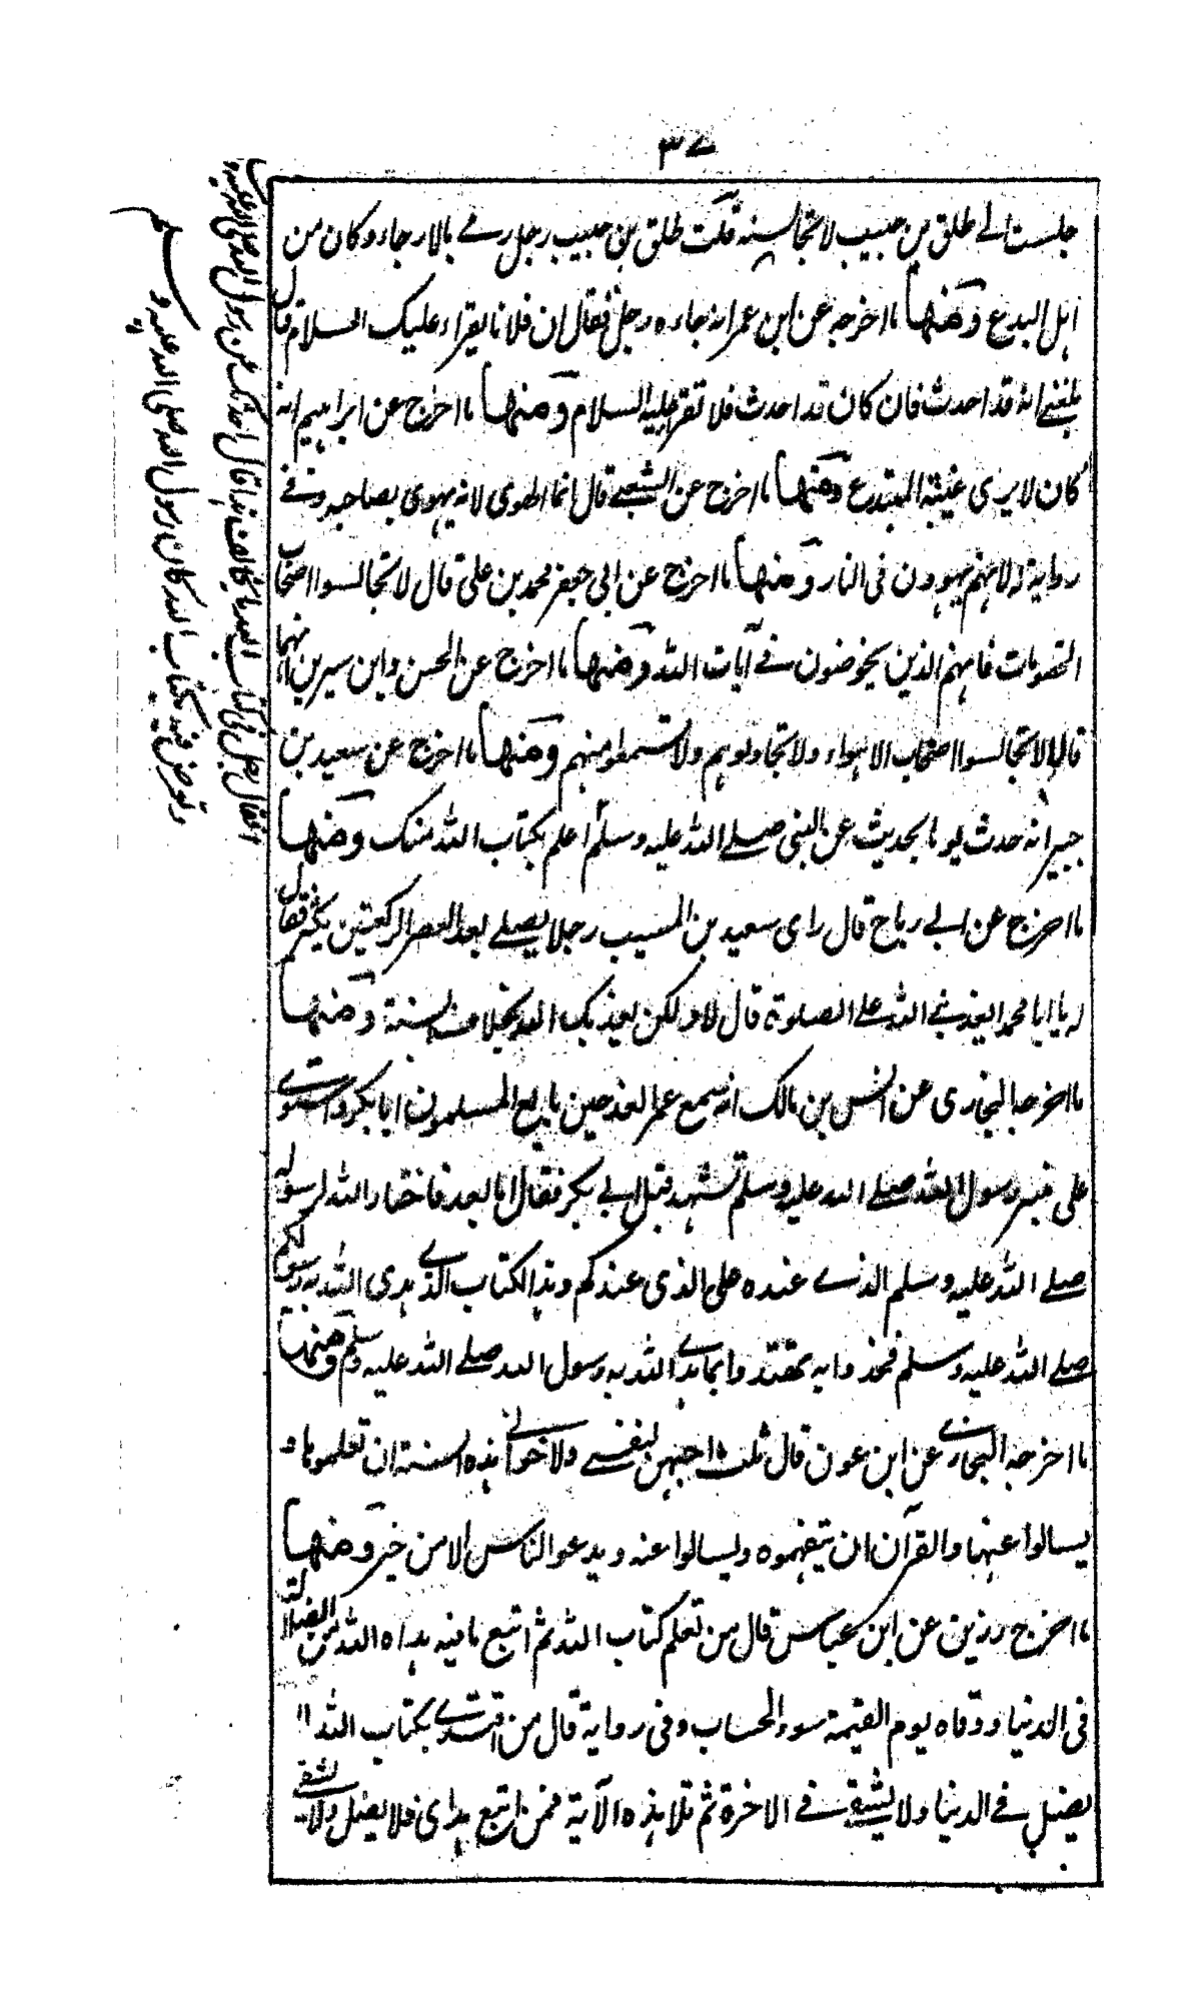 ٣٧
جلست الى طلق بن حبيب لا تجالسنه قلت طلق بن حبيب رجل رمى بالارجاء وكان من
اهل البدع ومنها ما اخرجه عن ابن عمر انه جاءه رجل فقال ان فلانا يقراء عليك السلام قال
بلغنى انه قد احدث فان كان قد احدث فلا تقر عليه السلام ومنها ما اخرج عن ابراهيم انه
كان لا يرى غيبة المبتدع ومنها ما اخرج عن الشعبے قال انما الهوى لانه يهوى بصاحبه وفے
رواية لانهم يهوون فى النار ومنها ما اخرج عن ابى جعفر محمد بن على قال لا تجالسوا اصحاب
الخصومات فانهم الذين يخوضون فے آيات الله ومنها ما اخرج عن الحسن وابن سيرين انهما
قالا لا تجالسوا اصحاب الاهواء ولا تجادلوهم ولا تسمعوا منهم ومنها ما اخرج عن سعيد بن
جبير انه حدث يوما بحديث عن النبى صلے الله عليه وسلم اعلم بكتاب الله منك ومنها
ما اخرج عن ابى رباح قال راى سعيد بن المسيب رجلا يصلے بعد العصر الركعتين يكثر فقال
له يا ابا محمد ايعذبنے الله على الصلوة قال لا ولكن يعذبك الله بخلاف السنة ومنها
ما اخرجه البخارى عن انس بن مالك انه سمع عمر الغد حين بايع المسلمون ابا بكر واستوے
على منبر رسول الله صلے الله عليه وسلم تشهد قبل ابى بكر فقال اما بعد فاختار الله لرسوله
صلے الله عليه وسلم الذے عنده على الذى عندكم وهذا الكتاب الذے هدى الله به رسولكم
صلے الله عليه وسلم فخذوا به تهتدوا وانما هدے الله به رسول الله صلے الله عليه وسلم ومنها
ما اخرجه البخارے عن ابن عون قال ثلث احبهن لنفسے ولاخوانے هذه السنة ان تعلموها و
يسالوا عنها والقرآن ان يتفهموه ويسالوا عنه ويدعو الناس الا من خير ومنها
ما اخرج رزين عن ابن عباس قال من تعلم كتاب الله ثم اتبع ما فيه هداه الله من الضلالة
فى الدنيا ووقاه يوم القيمة سوء الحساب وفى رواية قال من اقتدے بكتاب الله لا
يضل فے الدنيا ولا يشقے فے الاخرة ثم تلا هذه الآية فمن اتبع هداى فلا يضل ولا يشقے
فقال رجل فى كتاب الله ما يخالف هذا قال احدثك عن رسول الله صلى الله عليه وسلم
وتعرض فيه بكتاب الله كان رسول الله صلى الله عليه و
سلم